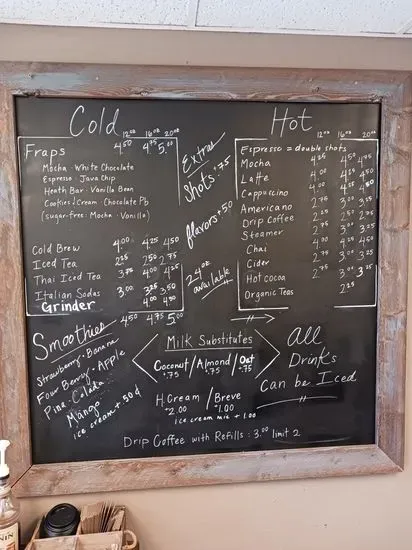 Cold
12oz 16oz 20oz
Fraps 4.50 4.75 5.00
Mocha · White Chocolate
Espresso · Java Chip
Heath Bar · Vanilla Bean
Cookies & Cream · Chocolate Pb
(sugar-free: Mocha · Vanilla)
Cold Brew 4.00 4.25 4.50
Iced Tea 2.25 2.50 2.75
Thai Iced Tea 3.75 4.00 4.25
Italian Sodas 3.00 3.25 3.50
Grinder 4.00 4.50
Extras
Shots +.75
flavors +.50
24oz available
Hot
12oz 16oz 20oz
Espresso = double shots
Mocha 4.25 4.50 4.75
Latte 4.00 4.25 4.50
Cappuccino 4.00 4.25 4.50
Americano 2.75 3.00 3.25
Drip Coffee 2.75 3.00 3.25
Steamer 2.75 3.00 3.25
Chai 4.00 4.25 4.50
Cider 2.75 3.00 3.25
Hot cocoa 2.75 3.00 3.25
Organic Teas 2.25
Smoothies 4.50 4.75 5.00
Strawberry · Banana
Four Berry · Apple
Pina · Colada
Mango
ice cream + .50¢
Milk Substitutes
Coconut / Almond / Oat
+.75 +.75 +.75
H. Cream / Breve
+2.00 +1.00
ice cream mix + 1.00
all
Drinks
Can be Iced
Drip Coffee with Refills : 3.00 limit 2